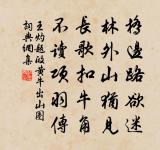 樵邊路欲迷
林外山猶見
長歌扣牛角
不讀項羽傳
王灼題皎黃牛出山圖
詞典網集